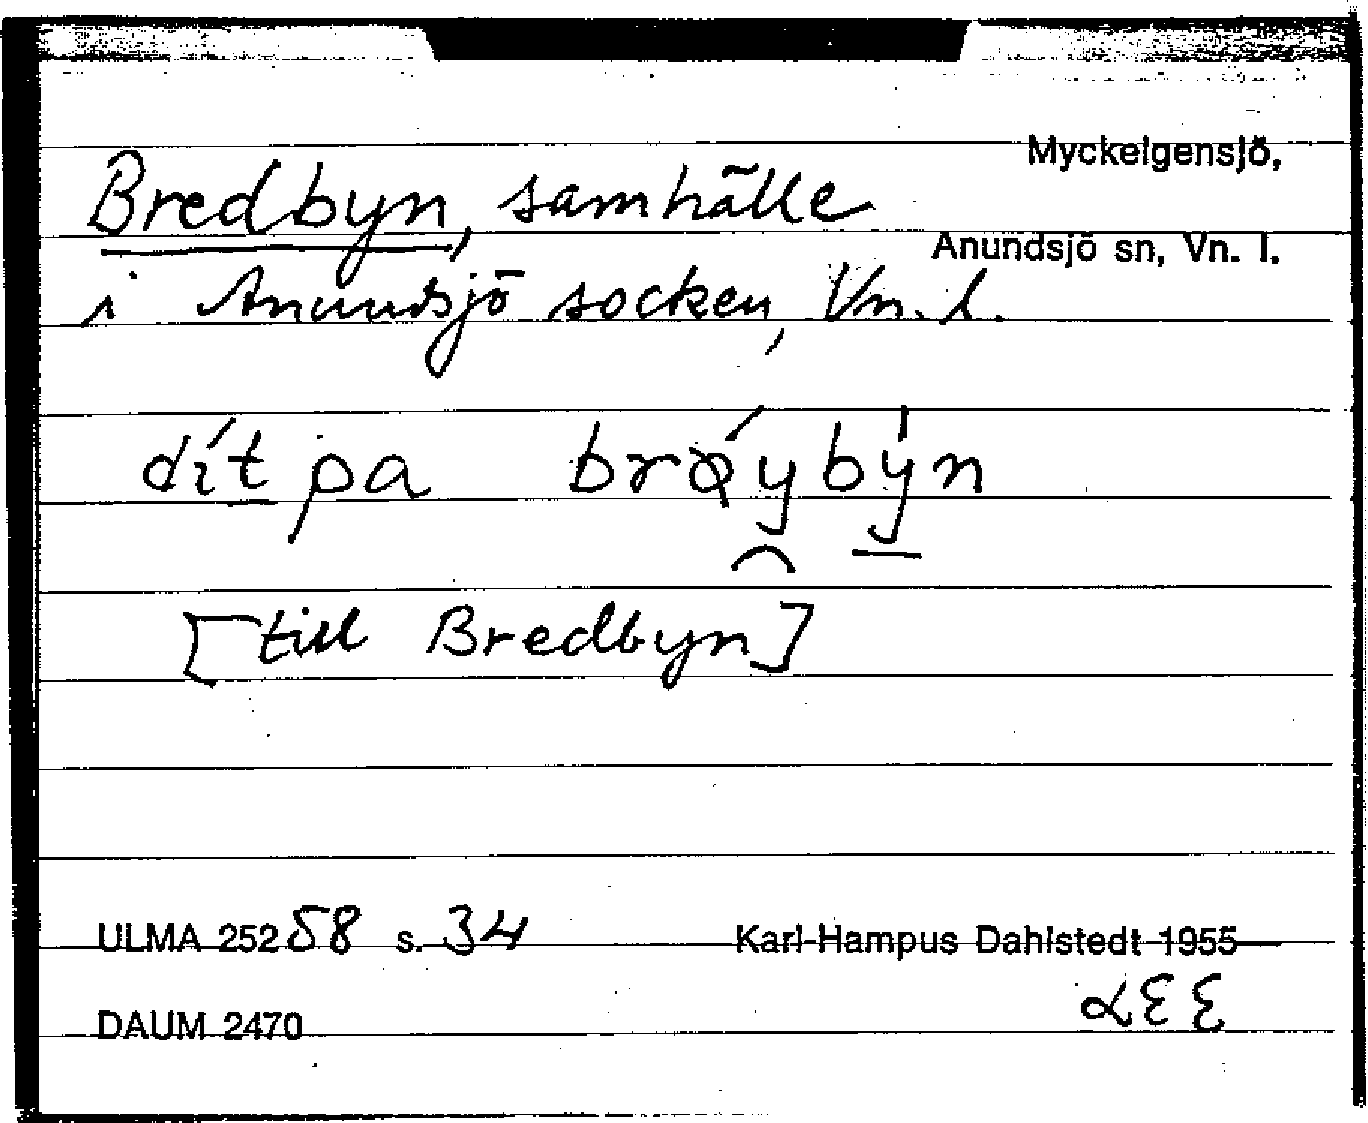 Myckelgensjö,
Bredbyn, samhälle
Anundsjö sn, Vn. l.
i Anundsjö socken, Vn. l.
dít pa brǿybýn
[till Bredbyn]
ULMA 25258 s. 34
Karl-Hampus Dahlstedt 1955
DAUM 2470